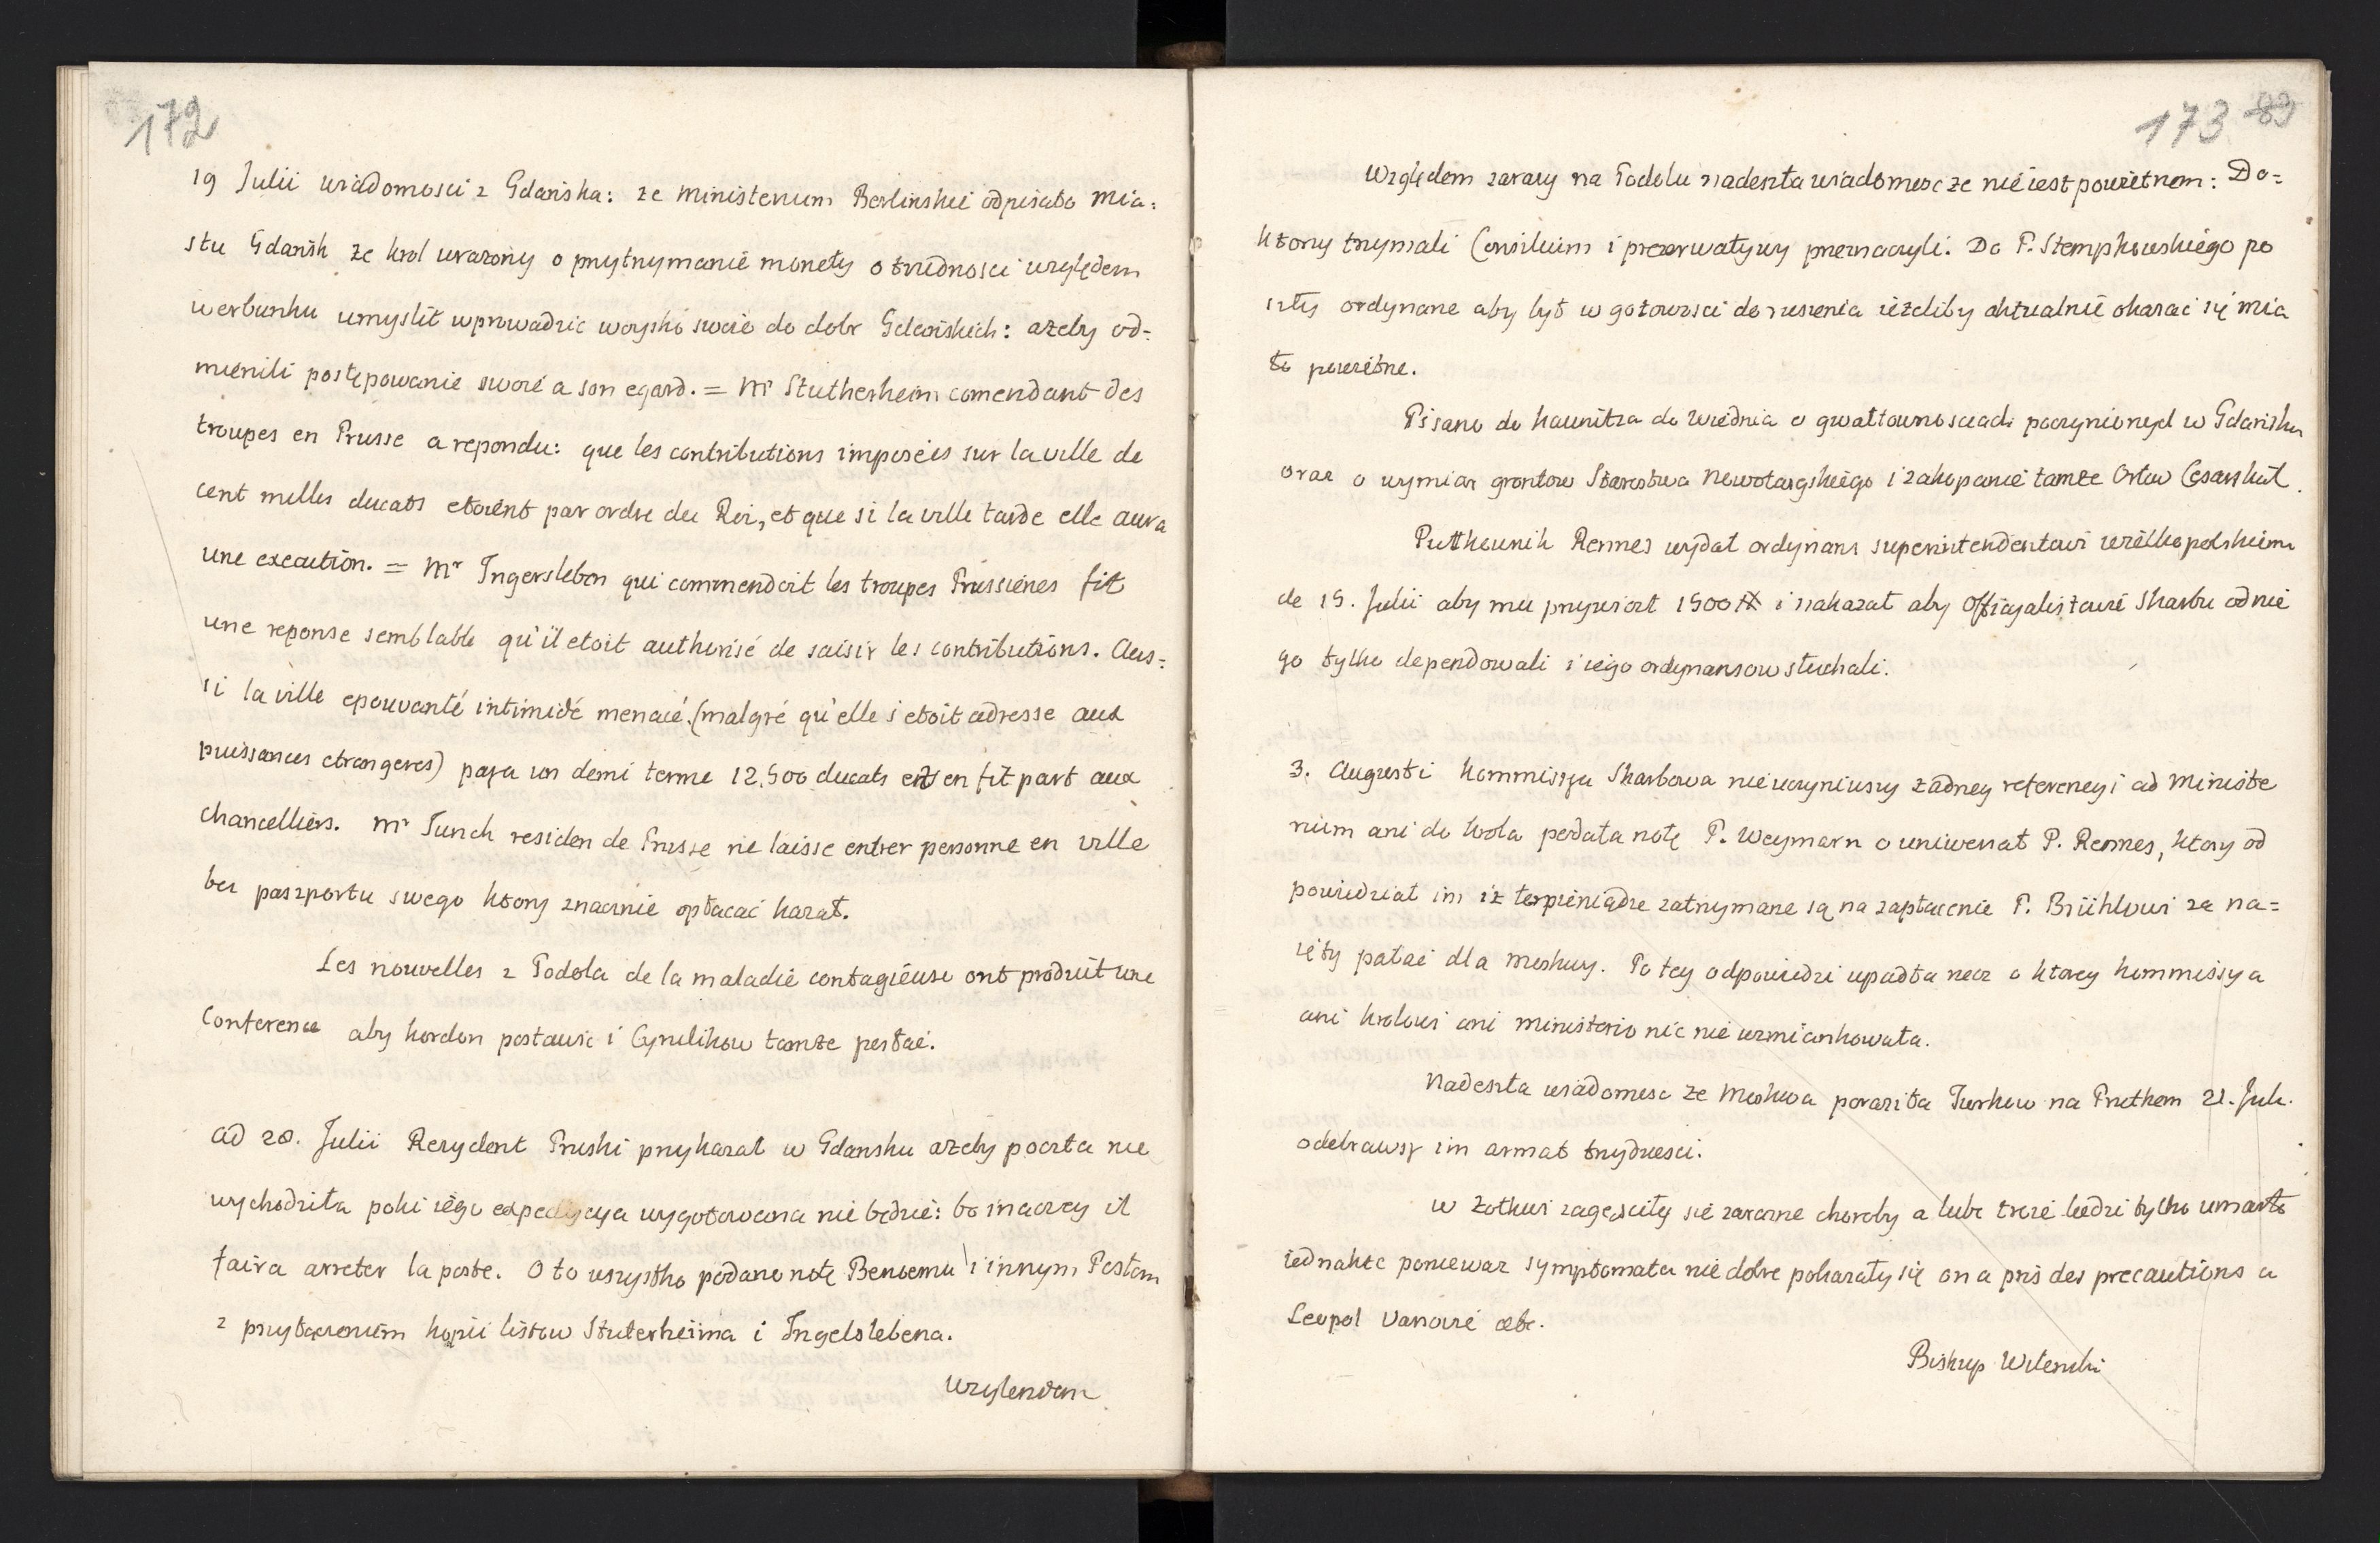 172
19 Julii wiadomosci z Gdańska: że ministerium Berlinskie odpisało mia:
stu Gdańsk że krol urażony o przytrzymanie monety o trudnosci względem
werbunku umyslił wprowadzic woysko swoie do dobr Gdańskich: ażeby od=
mienili postępowanie swoié a son egard. = Mr Stutherheim comendant des
troupes en Prusse a repondu: que les contributions imposeés sur la ville de
cent milles ducats etoient par ordre du Roi, et que si la ville tarde elle aura
une execution. = Mr Ingersleben qui commendoit les troupes Prussienes fit
une reponse semblable qu'il etoit authorisé de saisir les contributions. Aus=
si la ville epouvanté intimidé menacé (malgré qu'elle s etoit adresse aux
puissances etrangeres) paya un demi terme 12,500 ducats et en fit part aux
chancelliers. Mr Junck residen de Prusse ne laisse entrer personne en ville
bez paszportu swego ktory znacznie opłacać kazał.
Les nouvelles z Podola de la maladie contagieuse ont produit une
Conference aby kordon postawić i Cyrulikow tamże posłać.
ad 28. Julii Rezydent Pruski przykazał w Gdansku ażeby poczta nie
wychodziła poki iego expedycya wygotowana nie będzie: bo inaczey il
faira arreter la poste. O to wszystko podano notę Benoemu i innym Posłom
z przyłączeniem kopii listow Stuterheima i Ingelslebena.
Względem
173 89
Względem zarazy na Podolu nadeszła wiadomosc że nie iest powietrzem: Do=
ktorzy trzymali Consilium i prezerwatywy przeznaczyli. Do P. Stempkowskiego po
szły ordynanse aby był w gotowosci do ruszenia ieżeliby aktualnie okazać się mia
ło powietrze.
Pisano do Kaunitza do Wiednia o gwałtownosciach poczynionych w Gdańsku
oraz o wymiar grontow Starostwa Nowotargskiego i zakopanie tamże Orłow Cesarskich.
Pułkownik Rennes wydał ordynans superintendentowi wielkopolskiemu
de 15. Julii aby mu przywiozł 1500 # i nakazał aby Officyalistowie Skarbu od nie
go tylko dependowali i iego ordynansow słuchali.
3. Augusti Kommissya Skarbowa nie uczyniwszy żadney referencyi ad Ministe
rium ani do krola podała notę P. Weymarn o uniwersał P. Rennes, ktory od
powiedział im iż te pieniądze zatrzymane są na zapłacenie P. Brühlowi za na=
ięty pałac dla moskwy. Po tey odpowiedzi upadła rzecz o ktorey kommissya
ani krolowi ani ministerio nic nie wzmiankowała.
Nadeszła wiadomosc że Moskwa poraziła Turkow na Pruthem 21. Jul.
odebrawszy im armat trzydziesci.
w Żołkwi zagęsciły się zarazne choroby a lubo troie ludzi tylko umarło
iednakże poniewaz symptomata nie dobre pokazały się on a pris des precautions a
Leopol Varsovié etc.
Biskup Wilenski